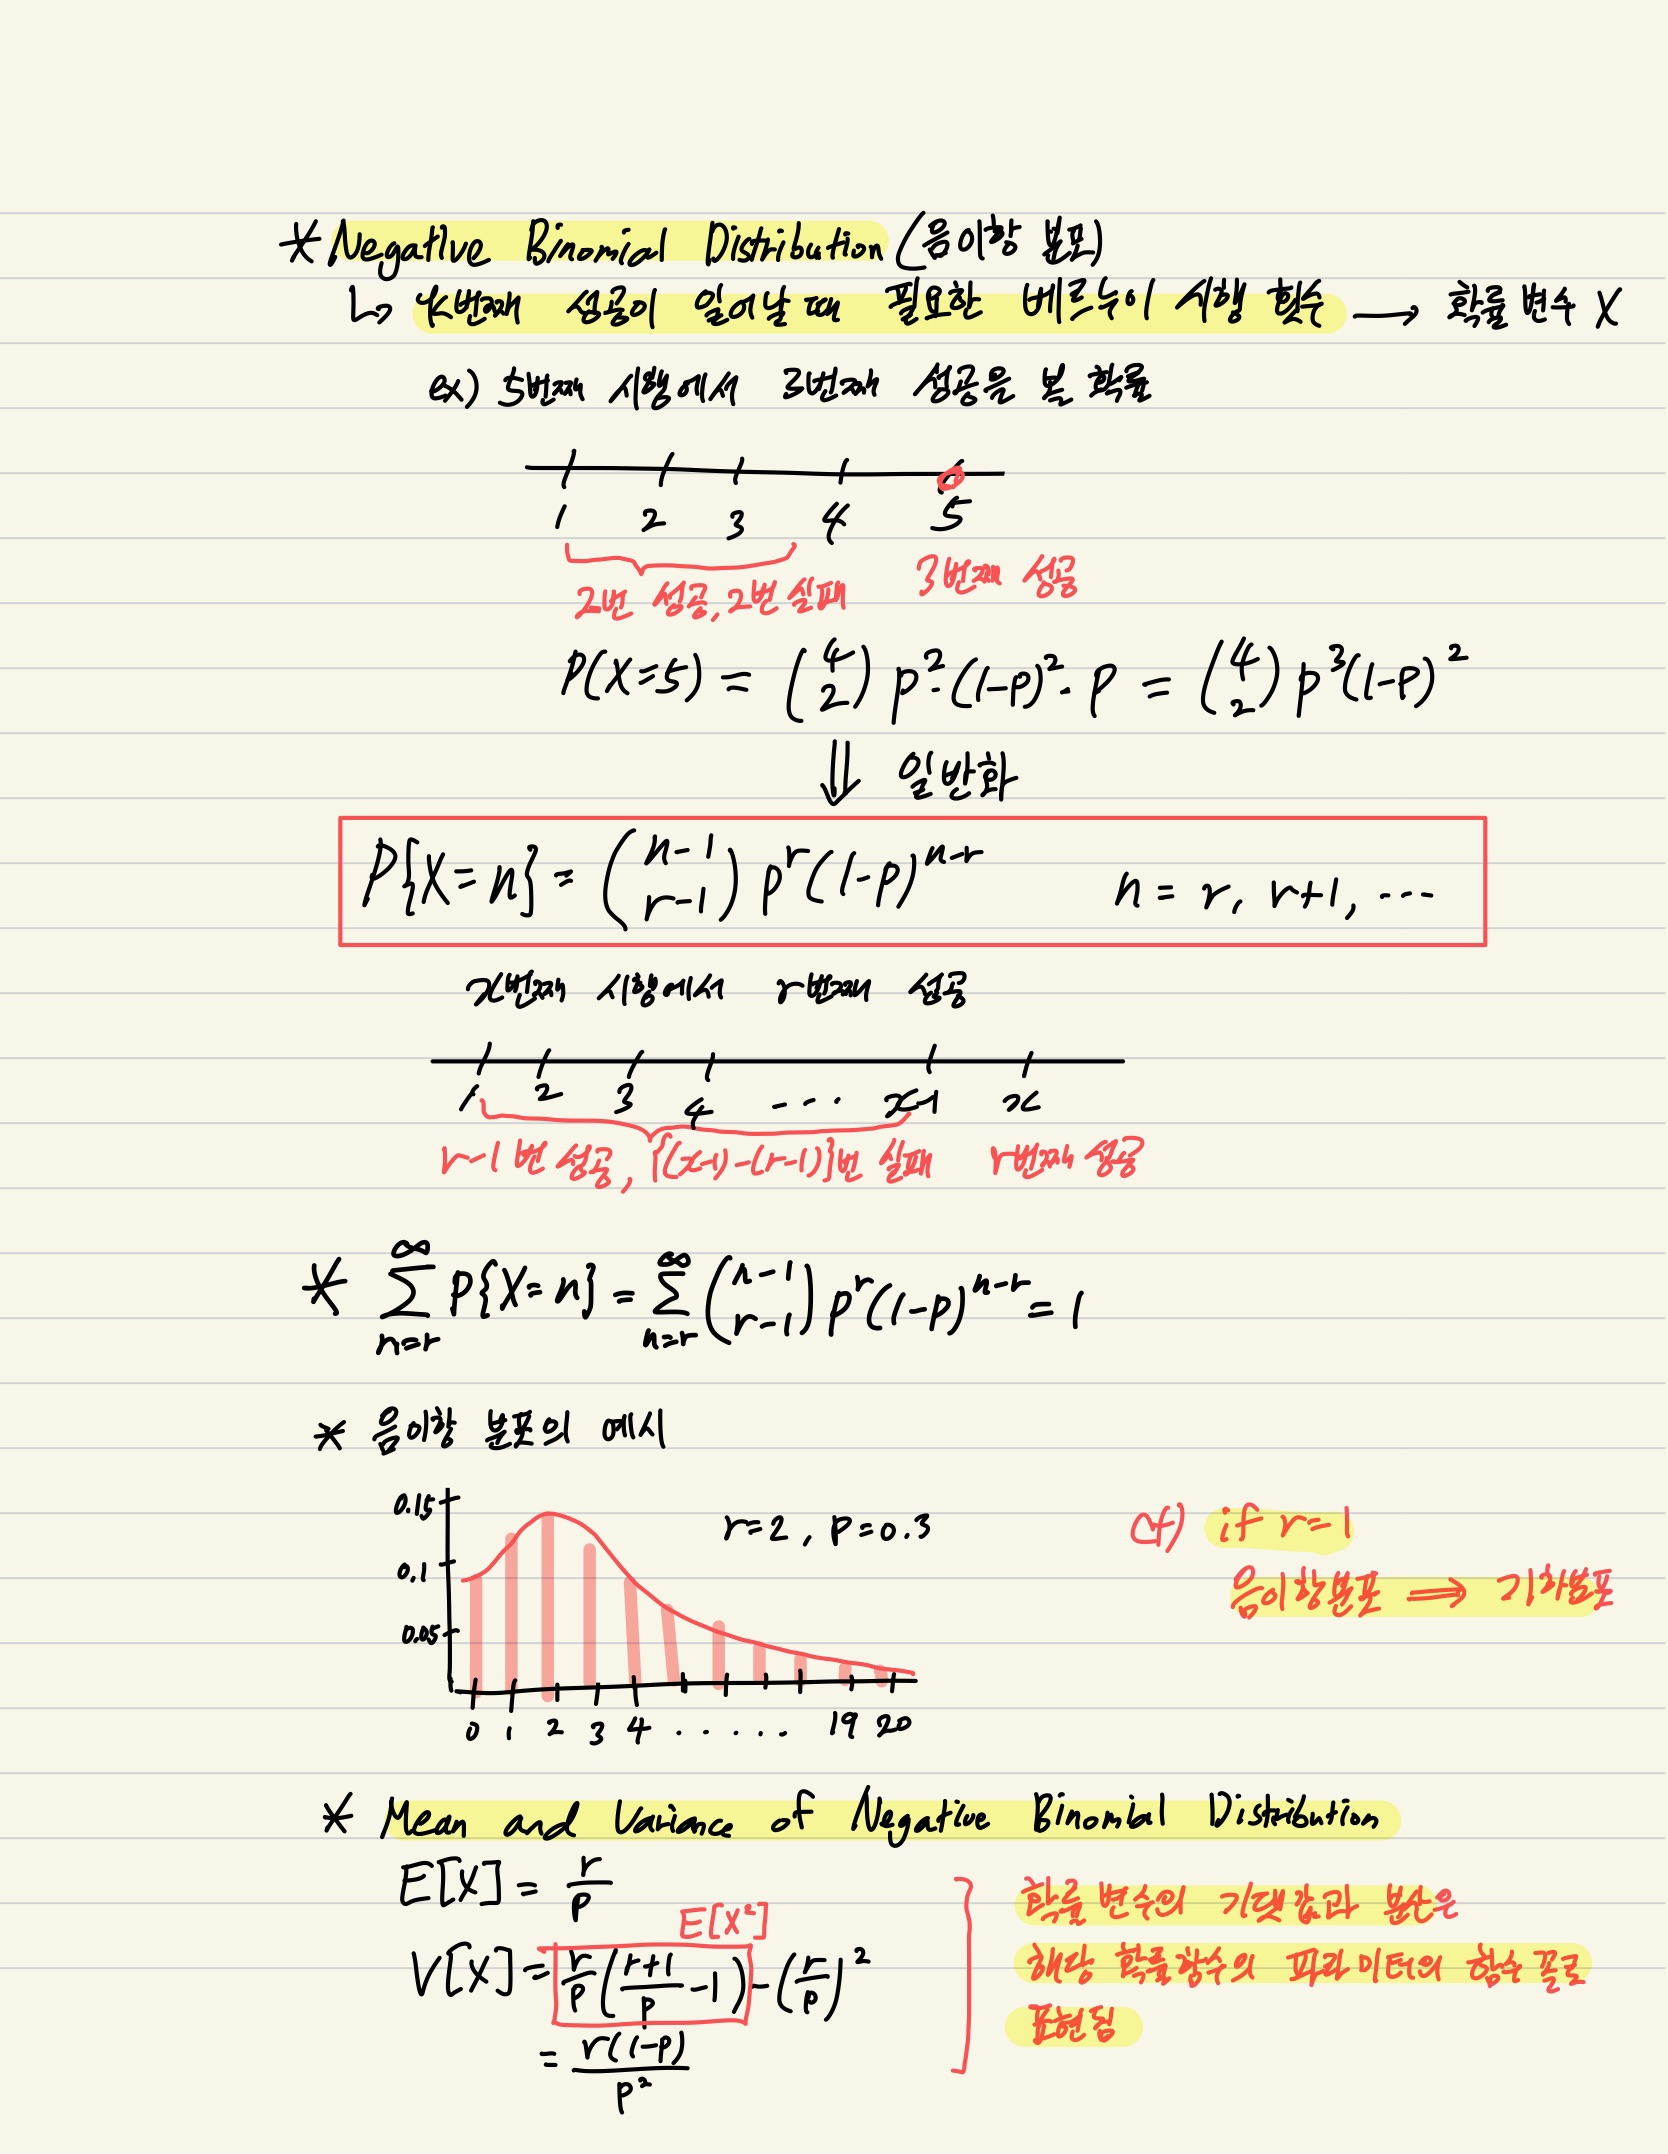 * Negative Binomial Distribution (음이항 분포)
↳ k번째 성공이 일어날 때 필요한 베르누이 시행 횟수 → 확률 변수 X
ex) 5번째 시행에서 3번째 성공을 볼 확률
1 2 3 4 5
2번 성공, 2번 실패 3번째 성공
P(X=5) = (4 2) p²·(1-p)²·p = (4 2) p³(1-p)²
⇓ 일반화
P{X=n} = (n-1 r-1) p^r (1-p)^{n-r} n = r, r+1, ...
x번째 시행에서 r번째 성공
1 2 3 4 ... x-1 x
r-1번 성공, {(x-1)-(r-1)}번 실패 r번째 성공
* ∑_{n=r}^{∞} P{X=n} = ∑_{n=r}^{∞} (n-1 r-1) p^r (1-p)^{n-r} = 1
* 음이항 분포의 예시
0.15
r=2, p=0.3
cf) if r=1
0.1
음이항분포 ⇒ 기하분포
0.05
0 1 2 3 4 ...... 19 20
* Mean and Variance of Negative Binomial Distribution
E[X] = r/p
E[X²]
V[X] = r/p ((r+1)/p - 1) - (r/p)²
= r(1-p)/p²
확률 변수의 기댓값과 분산은
해당 확률함수의 파라미터의 함수 꼴로
표현됨